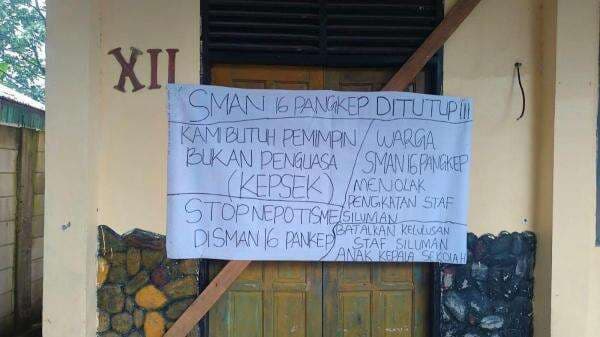 XII
SMAN 16 PANGKEP DITUTUP!!!
KAMI BUTUH PEMIMPIN
BUKAN PENGUASA
(KEPSEK)
STOP NEPOTISME
DI SMAN 16 PANKEP
WARGA
SMAN 16 PANGKEP
MENOLAK
PENGKATAN STAF
SILUMAN
BATALKAN KELULUSAN
STAF SILUMAN
ANAK KEPALA SEKOLAH